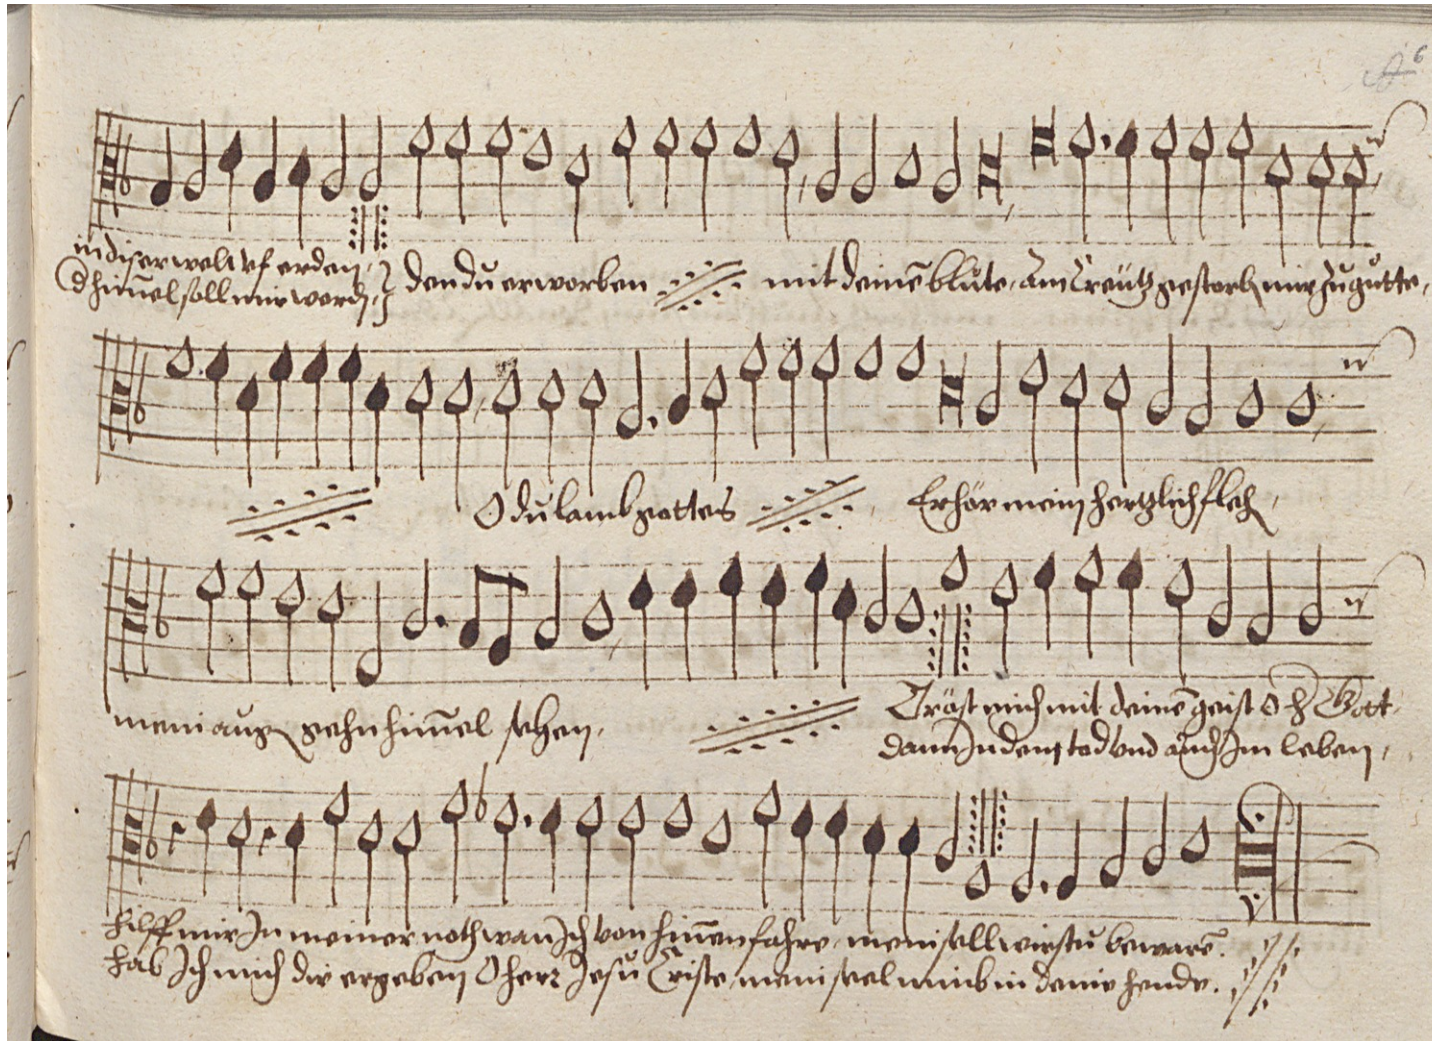 6
in diser welt uf erden,
d himel soll mir werdē,
den du erworben
mit deinē blute, am Creütz gestorbē mir zu gutte,
O du lamb gottes
Erhör mein hertzlich flehē,
mein augē gehn himel sehen,
Tröst mich mit deinē geist O h Gott,
dann In dem tod und auch Im leben,
hilff mir In meiner noth wan Ich von hinnen fahre, mein sell wirstu bewarē.
hab Ich mich dir ergeben O herr Jesu Criste, mein seel nimb in deine hende.